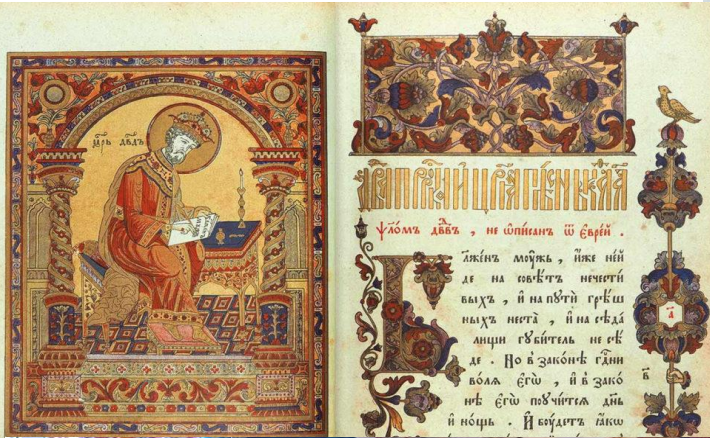 цр҃ь дв҃дъ
ѱл҃омъ дв҃двъ, не ѡписан ѿ еврей.
Блажен моужь, иже не и
де на совѣтъ нечести
выхъ, и на пути грѣш
ныхъ неста, и на сѣда
лищи губитель не сѣ
де. Но в законѣ гд҃ни
волѧ егѡ, и в зако
нѣ егѡ поучитсѧ дн҃ь
и нощь. И боудетъ ꙗко
а
в